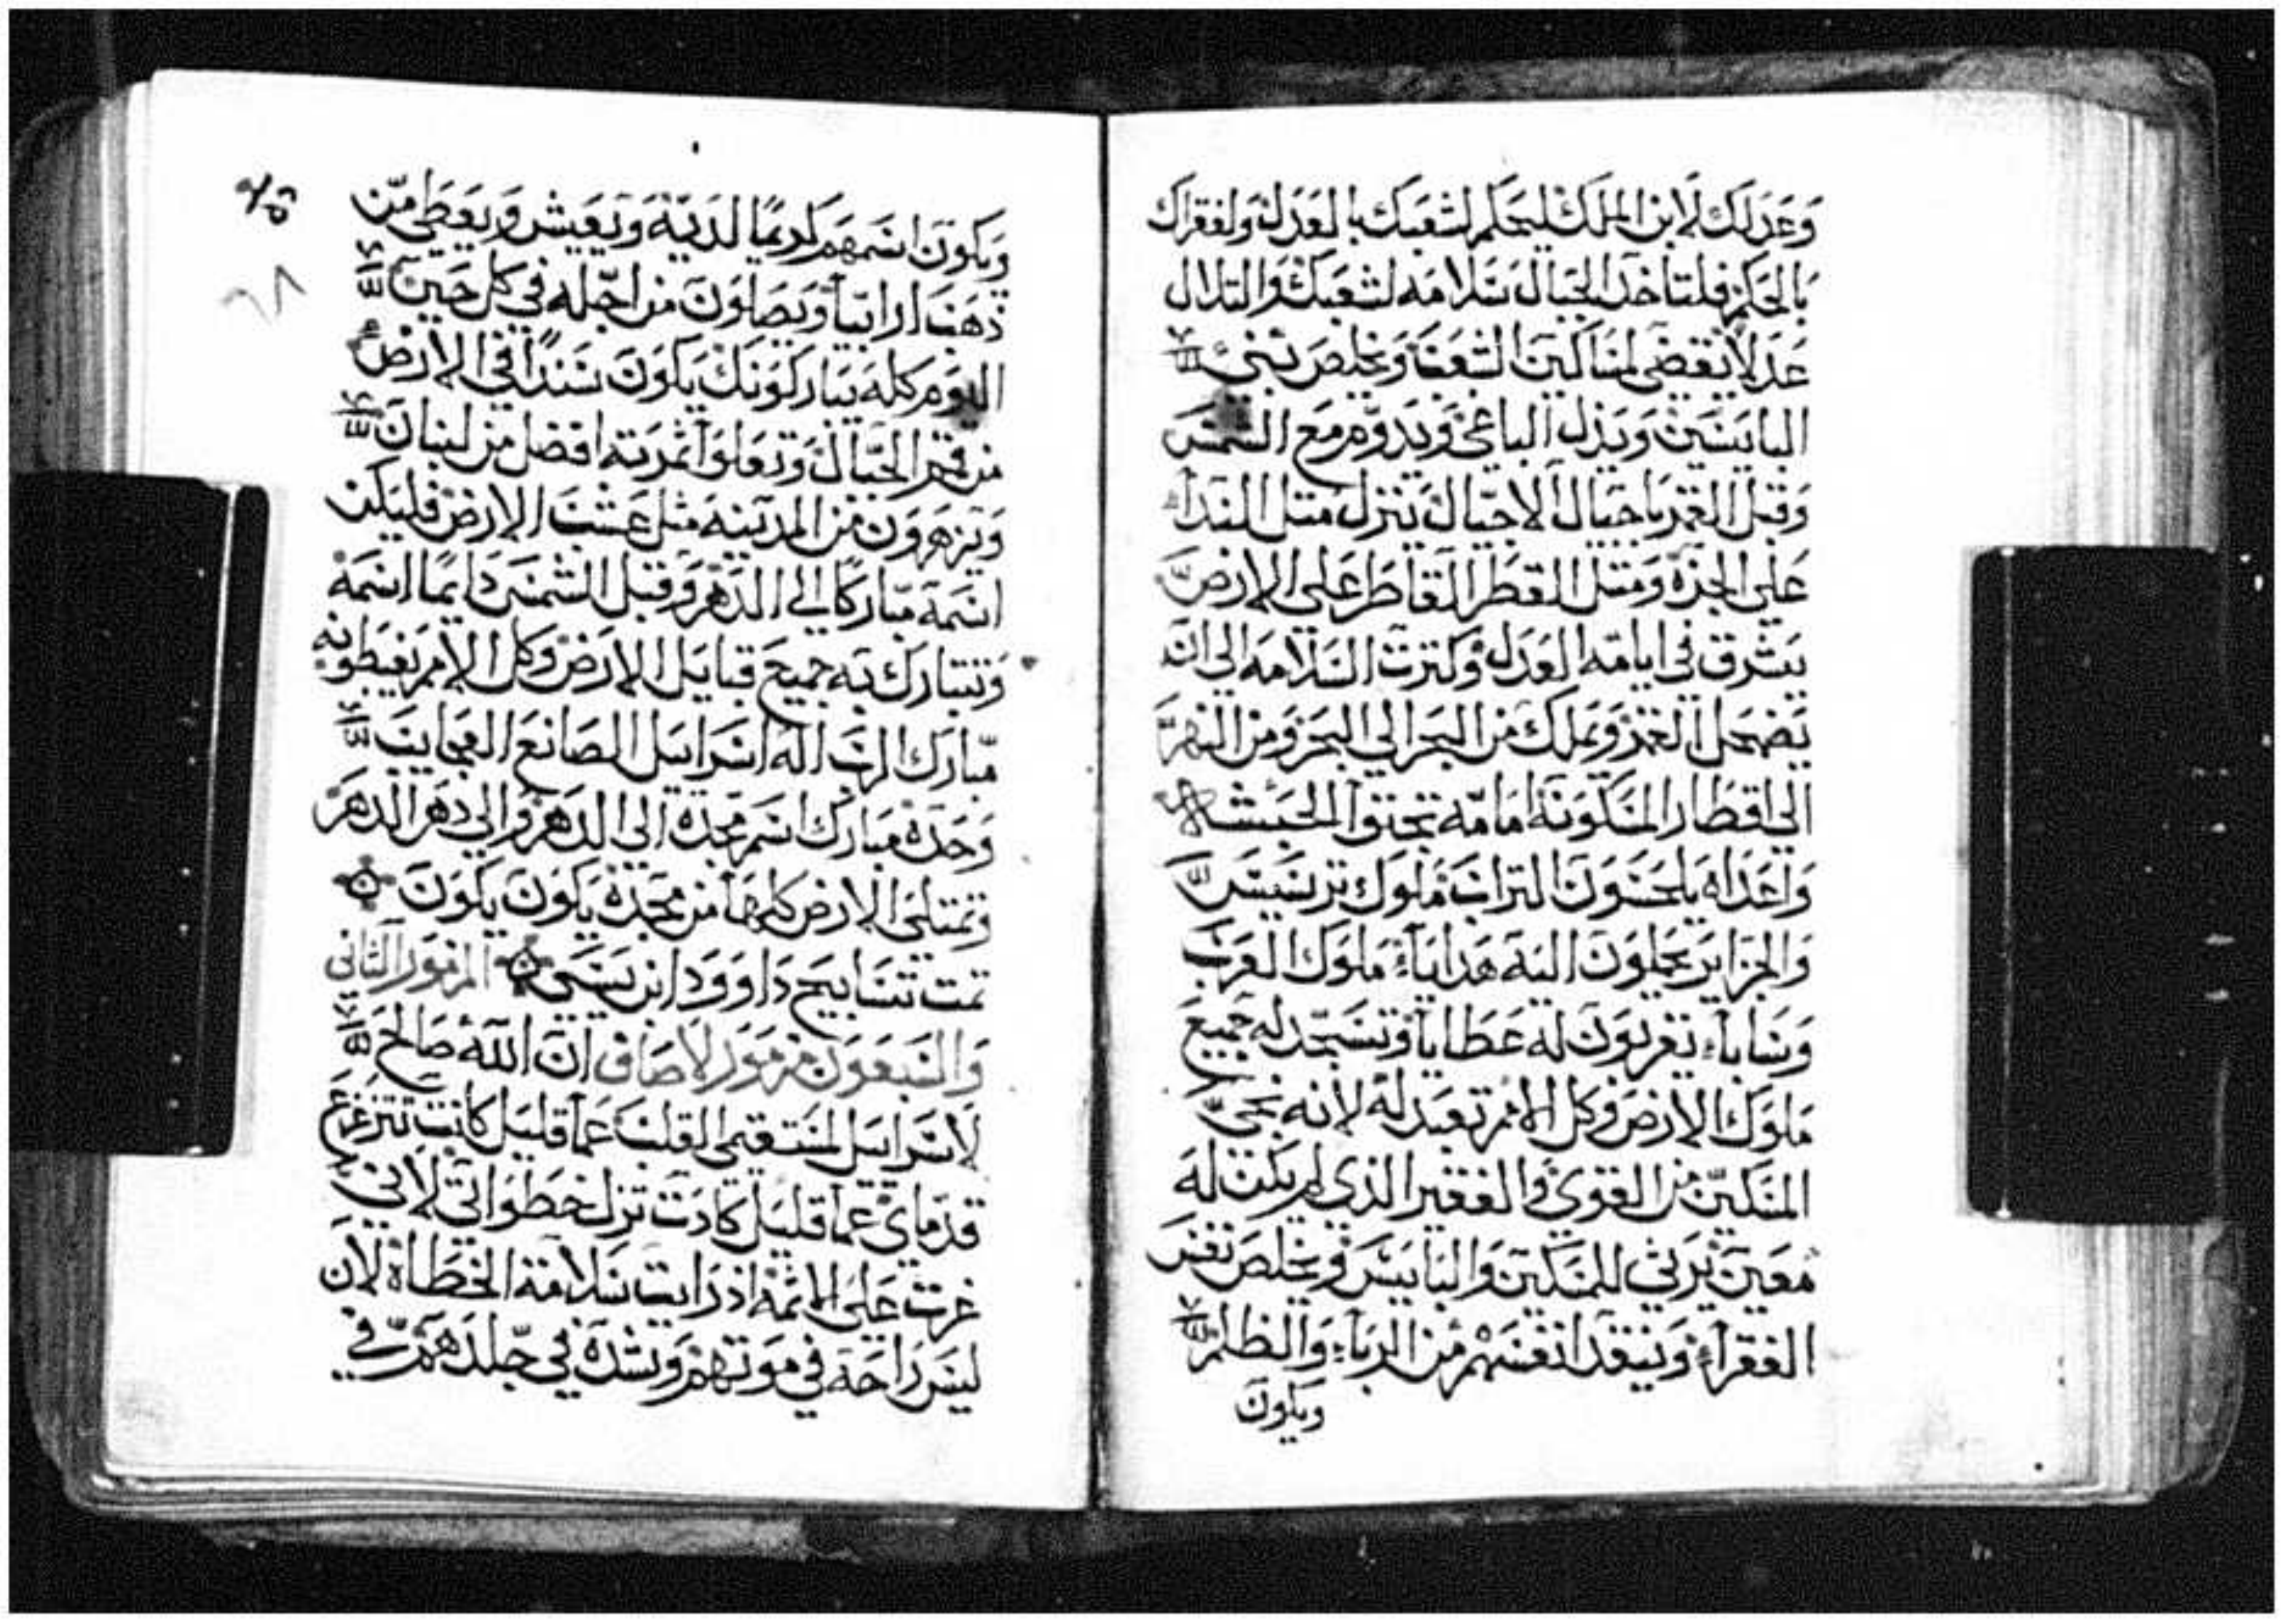 وعدلك لابن الملك ليحكم لشعبك بالعدل ولفقراك
بالحكم فلتاخذ الجبال سلامه لشعبك والتلال
عدلا يقضي لمساكين الشعب ويخلص بني
البايسين ويذل الباغي ويدوم مع الشمس
وقبل القمر باجيال الاجيال ينزل متل الندا
علي الجزه ومتل القطر القاطر علي الارض
يشرق في ايامه العدل وكترت السلامه الي ان
يضمحل القمر ويملك من البحر الي البحر ومن النهر
الي اقطار المسكونه امامه تجتوا الحبشه
واعداه يلحسون التراب ملوك ترسيس
والجزاير يحملون اليه هدايا ملوك العرب
وسابا يقربون له عطايا وتسجد له جميع
ملوك الارض وكل الامم تعبد له لانه نجي
المسكين من القوي والفقير الذي لم يكن له
معين يرثي للمسكين والبايس ويخلص نفس
الفقراء وينقذ انفسهم من الرباء والظلم
ويكون
ويكون اسمهم كريما لديه ويعيش ويعطي من
ذهب ارابيا ويصلون من اجله في كل حين
اليوم كله يباركونك يكون سندا في الارض
من قمم الجبال وتعلوا ثمرته افضل من لبنان
ويزهرون من المدينه مثل عشب الارض فليكن
اسمه مباركا الي الدهر وقبل الشمس دايما اسمه
وتتبارك به جميع قبايل الارض وكل الامم يغبطونه
مبارك الرب اله اسراييل الصانع العجايب
وحده مبارك اسم مجده الي الدهر والي دهر الدهر
وتمتلي الارض كلها من مجده يكون يكون
تمت تسابيح داوود ابن يسي المزمور الثاني
والسبعون مزمور لاصاف ان الله صالح
لاسراييل المستقيمي القلب عما قليل كانت تتزعزع
قدماي عما قليل كادت تزل خطواتي لاني
غرت علي الاثمه اذ رايت سلامة الخطاه لان
ليس راحه في موتهم وشده في جلدهم في